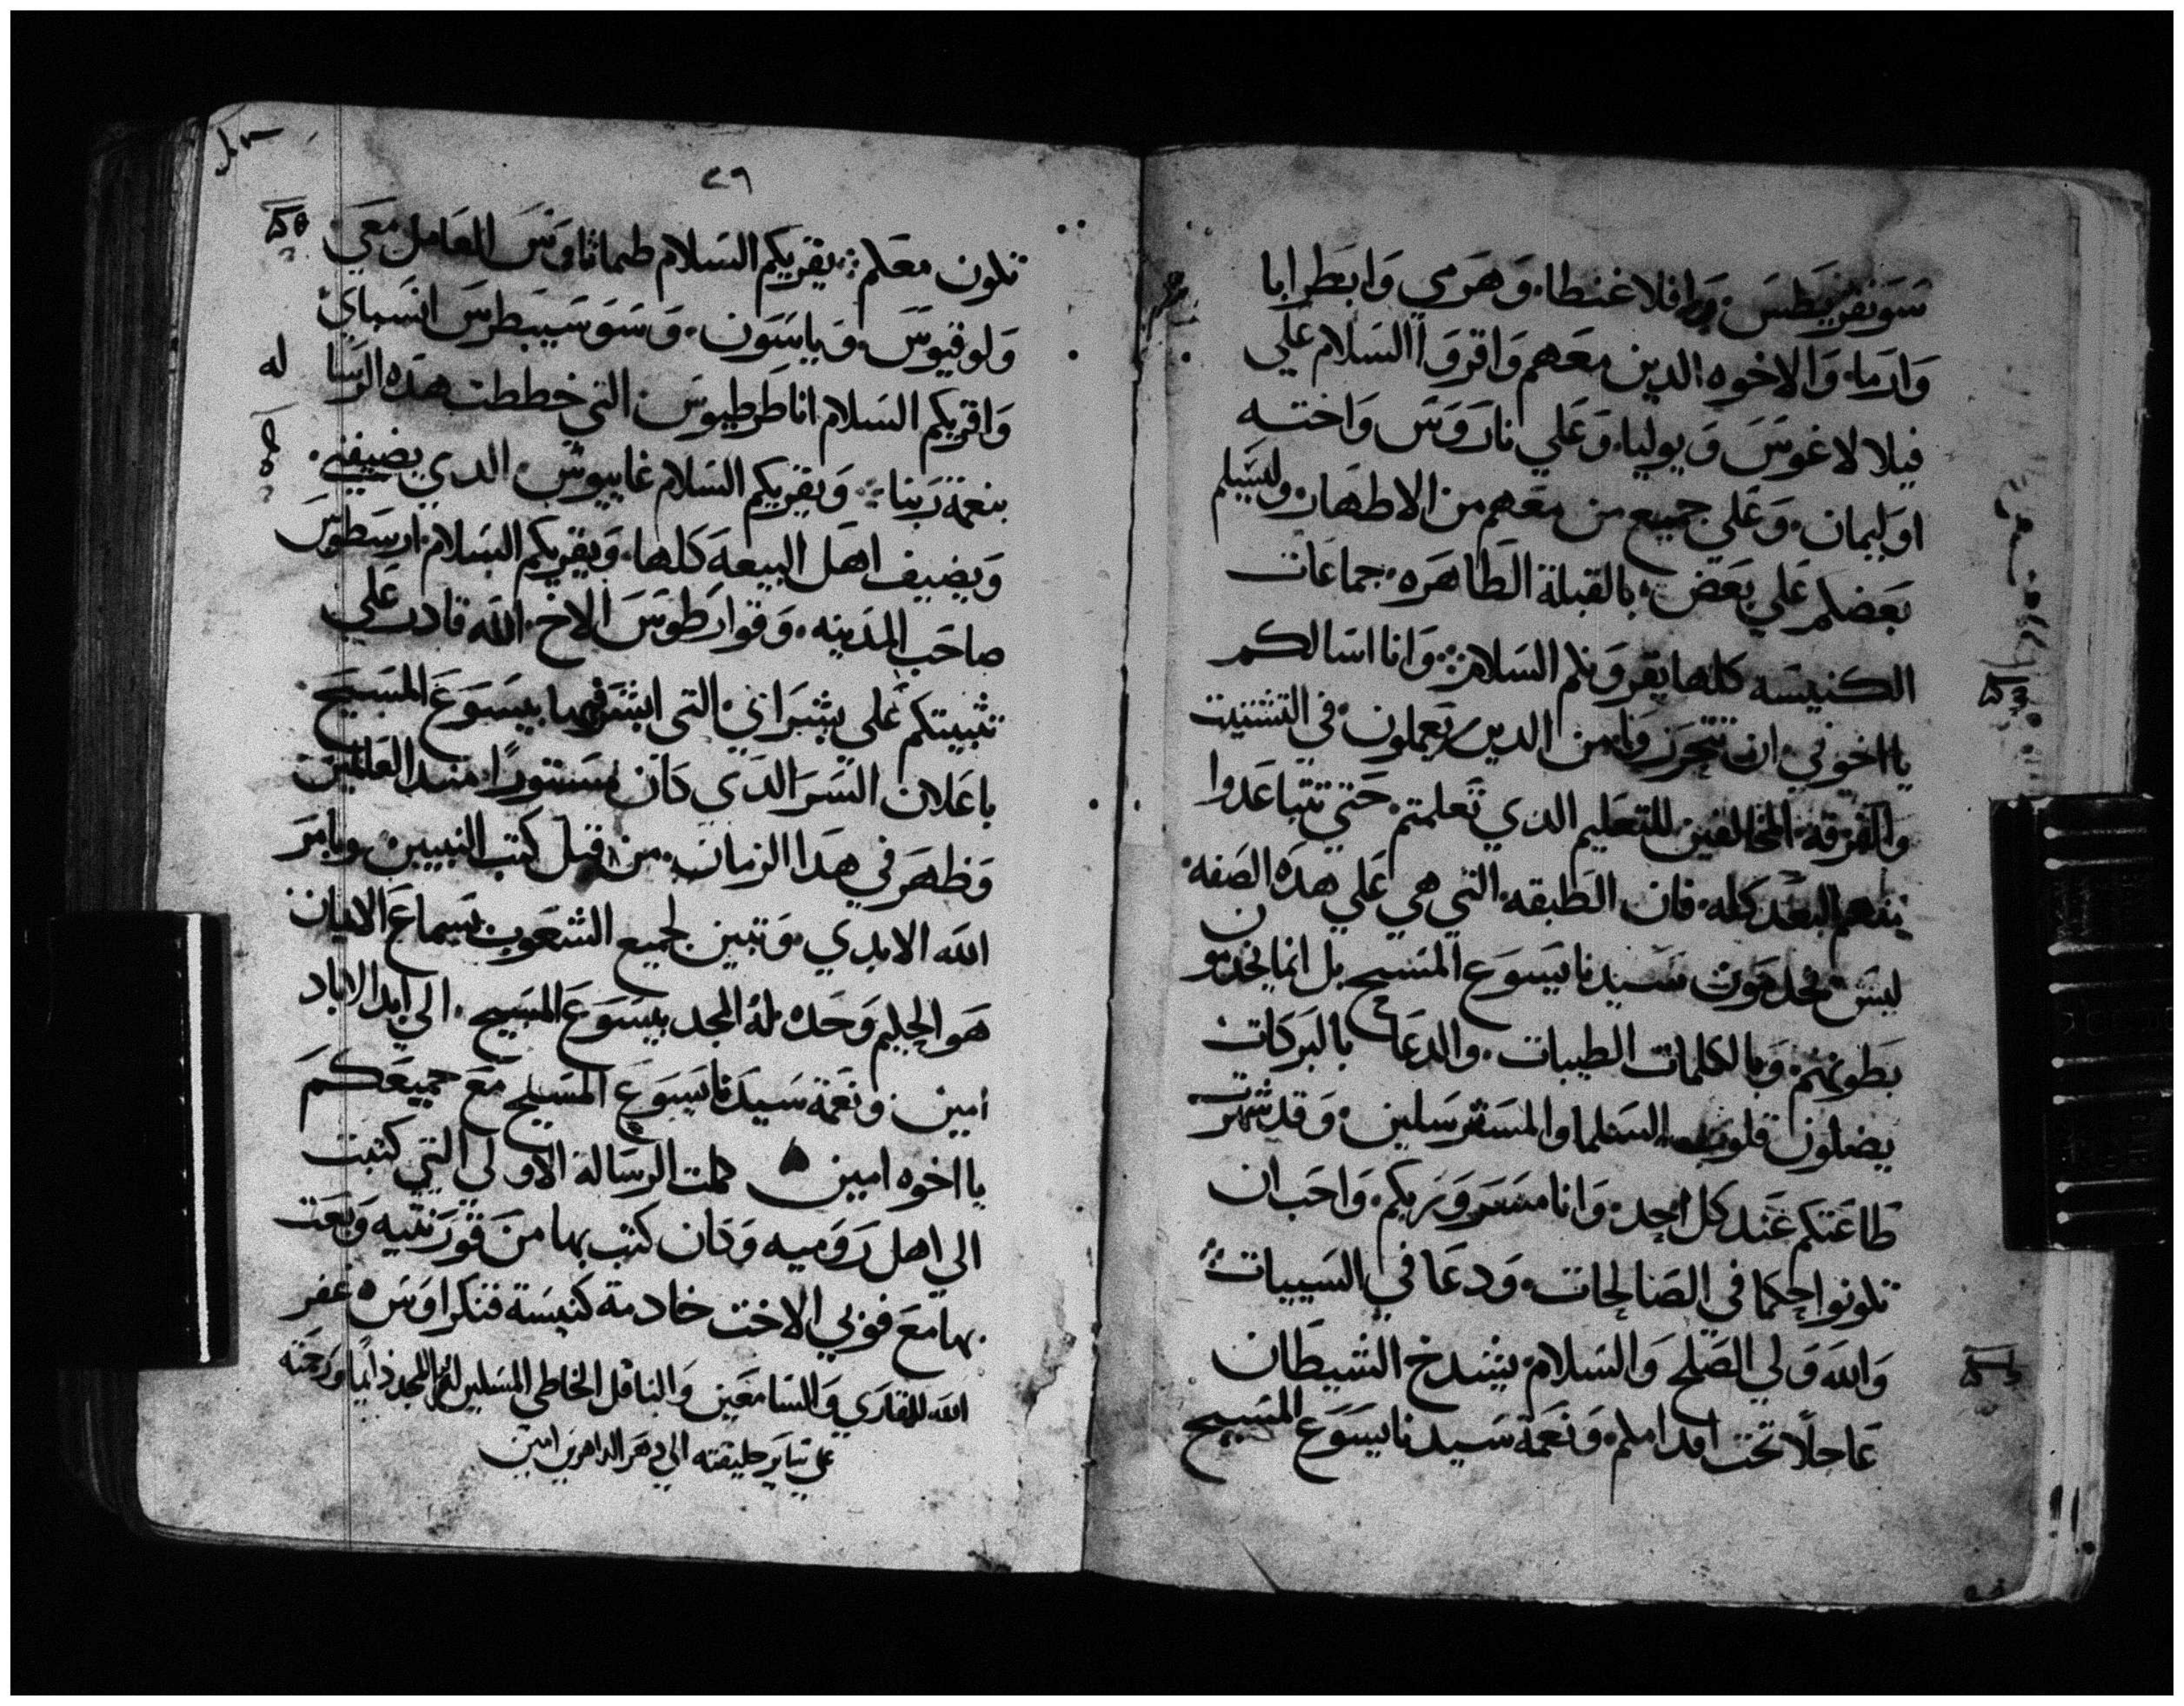 سونفريطس. وافلاغنطا. وهرمي وابطرابا
وارما. والاخوه الدين معهم واقروا السلام علي
فيلالاغوس ويوليا. وعلي ناروس واخته
اوليمان. وعلي جميع من معهم من الاطهار. وليسلم
بعضكم علي بعض. بالقبلة الطاهره. جماعات
الكنيسه كلها يقرونكم السلام. وانا اسالكم
يااخوتي. ان تتحرزوا. من الدين يعملون. في التشتيت
والفرقه. المخالفين للتعليم الدي تعلمتم. حتي تتباعدوا
منهم البعد كله. فان الطبقه. التي هي علي هده الصفه.
ليس يخدمون سيدنا يسوع المسيح بل انما يخدمون
بطونهم. وبالكلمات الطيبات. والدعا بالبركات
يضلون قلوب السلما والمسترسلين. وقد شهرت
طاعتكم عند كل احد. وانا مسرور بكم. واحب ان
تكونوا حكما في الصالحات. ودعا في السييات
والله ولي الصلح والسلام. يشدخ الشيطان
عاجلا تحت اقدامكم. ونعمة سيدنا يسوع المسيح
٢٩
تكون معكم. يقريكم السلام طيماثاوس العامل معي
ولوقيوس. وياسون. وسوسيبطرس انسباي
واقريكم السلام انا طرطيوس. التي خططت هده الرسا له
بنعمة ربنا. ويقريكم السلام غاييوس. الدي يضيفني.
ويضيف اهل البيعه كلها. ويقريكم السلام. ارسطوس
صاحب المدينه. وقوارطوس الاخ. الله قادر علي
تثبيتكم علي بشراني. التي ابشر فيها بيسوع المسيح
باعلان السر الدي كان مستورا. مند العالمين
وظهر في هدا الزمان. من قبل كتب النبيين. وبامر
الله الابدي. وتبين لجميع الشعوب سماع الايمان
هو الحكيم وحده. له المجد بيسوع المسيح. الي ابد الاباد
امين. ونعمة سيدنا يسوع المسيح مع جميعكم
يااخوه امين كملت الرسالة الاولي التي كتبت
الي اهل روميه وكان كتب بها من قورنتيه وبعت
بها مع فوبي الاخت خادمة كنيسة قنكراوس غفر
الله للقاري والسامعين والناقل الخاطي المسكين له المجد دايما ورحمته
علي ساير خليقته الي دهر الداهرين امين